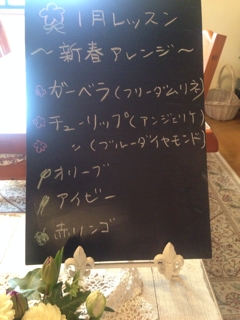 1月レッスン
～新春アレンジ～
ガーベラ(フリーダムリネ)
チューリップ(アンジェリケ)
〃(ブルーダイヤモンド)
オリーブ
アイビー
赤リンゴ